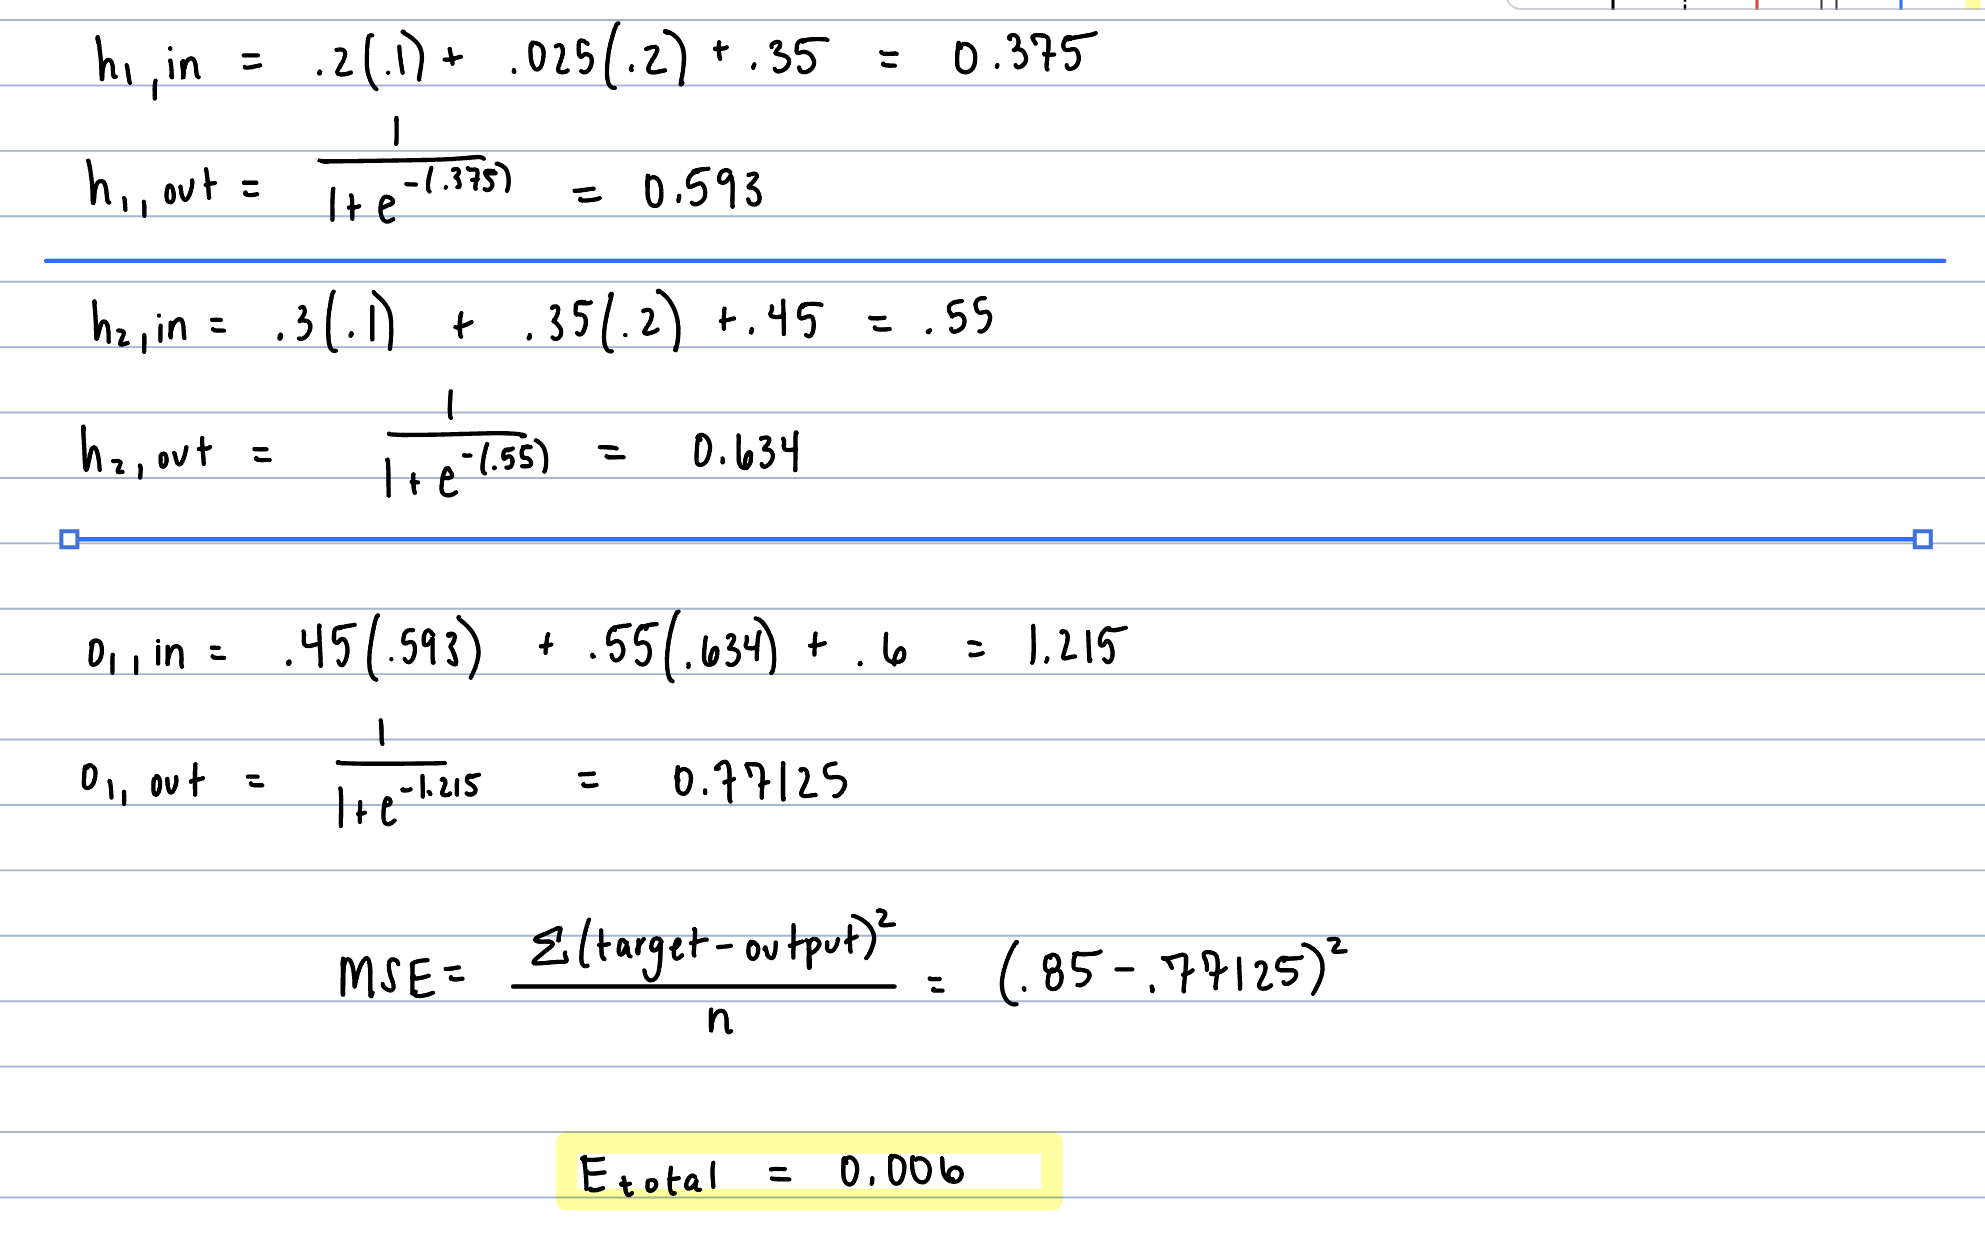 h₁,in = .2(.1) + .025(.2) + .35 = 0.375
h₁,out = 1/(1+e^-(.375)) = 0.593
h₂,in = .3(.1) + .35(.2) + .45 = .55
h₂,out = 1/(1+e^-(.55)) = 0.634
o₁,in = .45(.593) + .55(.634) + .6 = 1.215
o₁,out = 1/(1+e^-1.215) = 0.77125
MSE = Σ(target-output)²/n = (.85-.77125)²
E total = 0.006